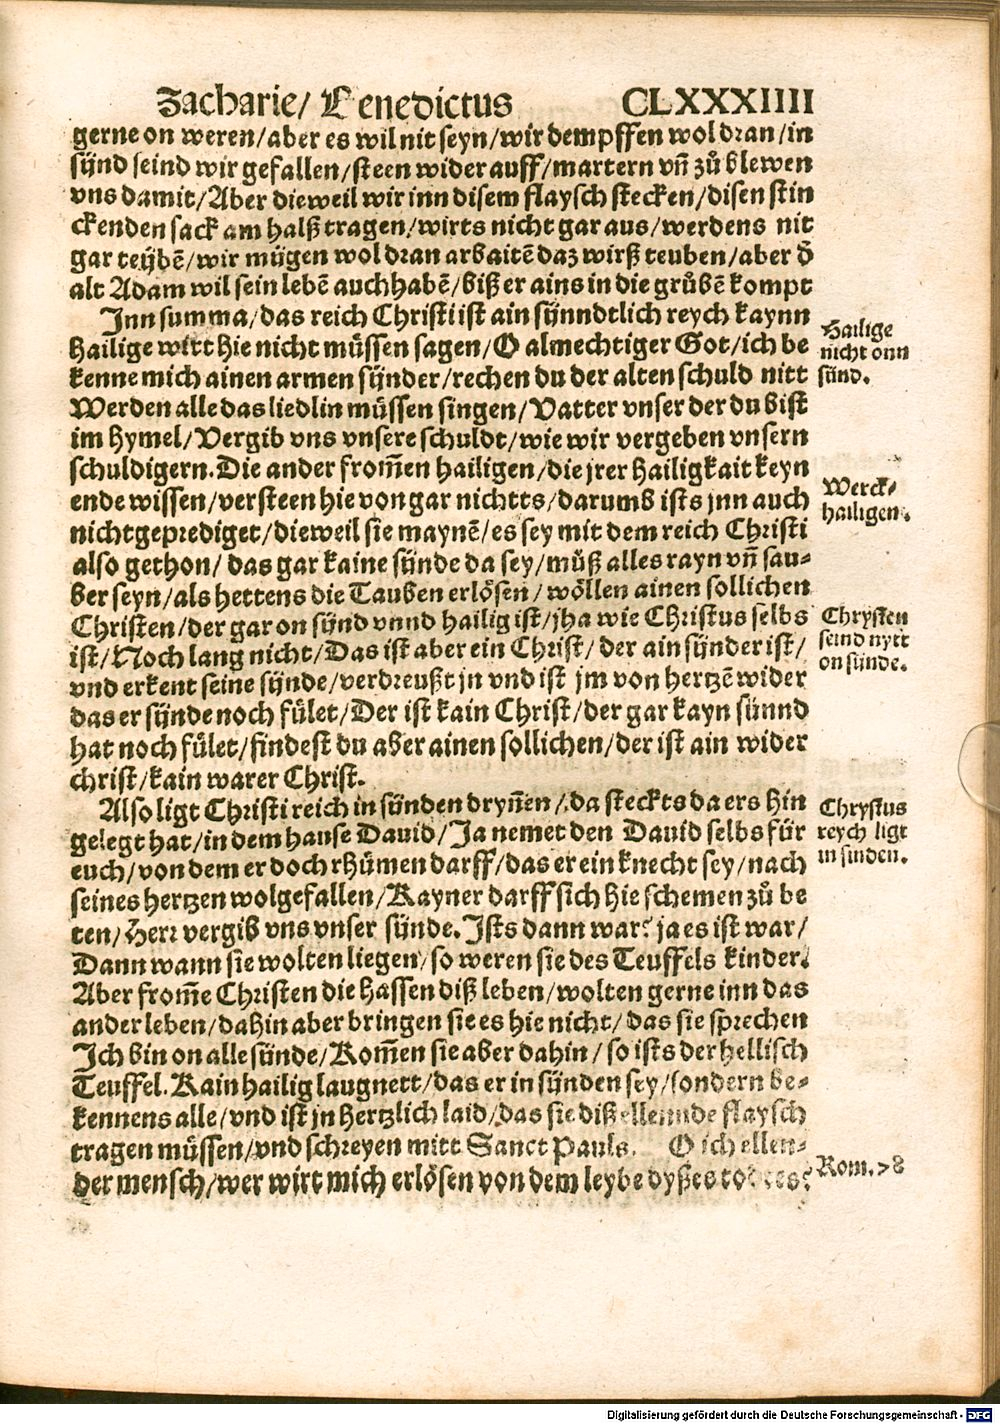 Zacharie/ Benedictus CLXXXIIII
gerne on weren/aber es wil nit seyn/wir dempffen wol dran/in
sünd seind wir gefallen/steen wider auff/martern vñ zů blewen
vns damit/Aber dieweil wir inn disem flaysch stecken/disen stin
ckenden sack am halß tragen/wirts nicht gar aus/werdens nit
gar teübē/wir mügen wol dran arbaitē daz wirß teuben/aber d̄
alt Adam wil sein lebē auch habē/biß er ains in die grůbē kompt
Inn summa/das reich Christi ist ain sünndtlich reych kaynn
Hailige wirt hie nicht müssen sagen/O almechtiger Got/ich be
kenne mich ainen armen sünder/rechen du der alten schuld nitt
Werden alle das liedlin müssen singen/Vatter vnser der du bist
im hymel/Vergib vns vnsere schuldt/wie wir vergeben vnsern
schuldigern. Die ander from̄en hailigen/die jrer Hailigkait keyn
ende wissen/versteen hie von gar nichtts/darumb ists jnn auch
nicht geprediget/dieweil sie maynē/es sey mit dem reich Christi
also gethon/das gar kaine sünde da sey/müß alles rayn vñ sau-
ber seyn/als hettens die Tauben erlösen/wöllen ainen sollichen
Christen/der gar on sünd vnnd hailig ist/jha wie Christus selbs
ist/Noch lang nicht/Das ist aber ein Christ/der ain sünder ist/
vnd erkent seine sünde/verdreußt jn vnd ist jm von hertzē wider
das er sünde noch fület/Der ist kain Christ/der gar kayn sünnd
hat noch fület/findest du aber ainen sollichen/der ist ain wider
christ/kain warer Christ.
Also ligt Christi reich in sünden dryn̄en/da steckts da ers hin
gelegt hat/in dem hause Dauid/Ja nemet den Dauid selbs für
euch/von dem er doch rhümen darff/das er ein knecht sey/nach
seines hertzen wolgefallen/Kayner darff sich hie schemen zů be
ten/Herr vergib vns vnser sünde. Ists dann war? ja es ist war/
Dann wann sie wolten liegen/so weren sie des Teuffels kinder.
Aber from̄e Christen die hassen diß leben/wolten gerne inn das
ander leben/dahin aber bringen sie es hie nicht/das sie sprechen
Ich bin on alle sünde/Kom̄en sie aber dahin/so ists der hellisch
Teuffel. Kain hailig laugnett/das er in sünden sey/sondern be-
kennens alle/vnd ist jn hertzlich laid/das sie diß ellennde flaysch
tragen müssen/vnd schreyen mitt Sanct Pauls. O ich ellen-
der mensch/wer wirt mich erlösen von dem leybe dyßes todtes?
Hailige
nicht onn
sünd.
Werck-
hailigen.
Chrysten
seind nytt
on sünde.
Chrystus
reych ligt
in sinden.
Rom. 78
Digitalisierung gefördert durch die Deutsche Forschungsgemeinschaft - DFG